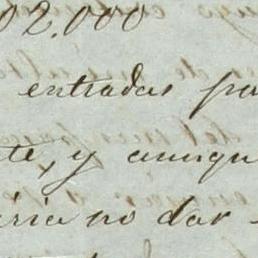 02.000
entradas pa
te, y aunqu
ria no dar